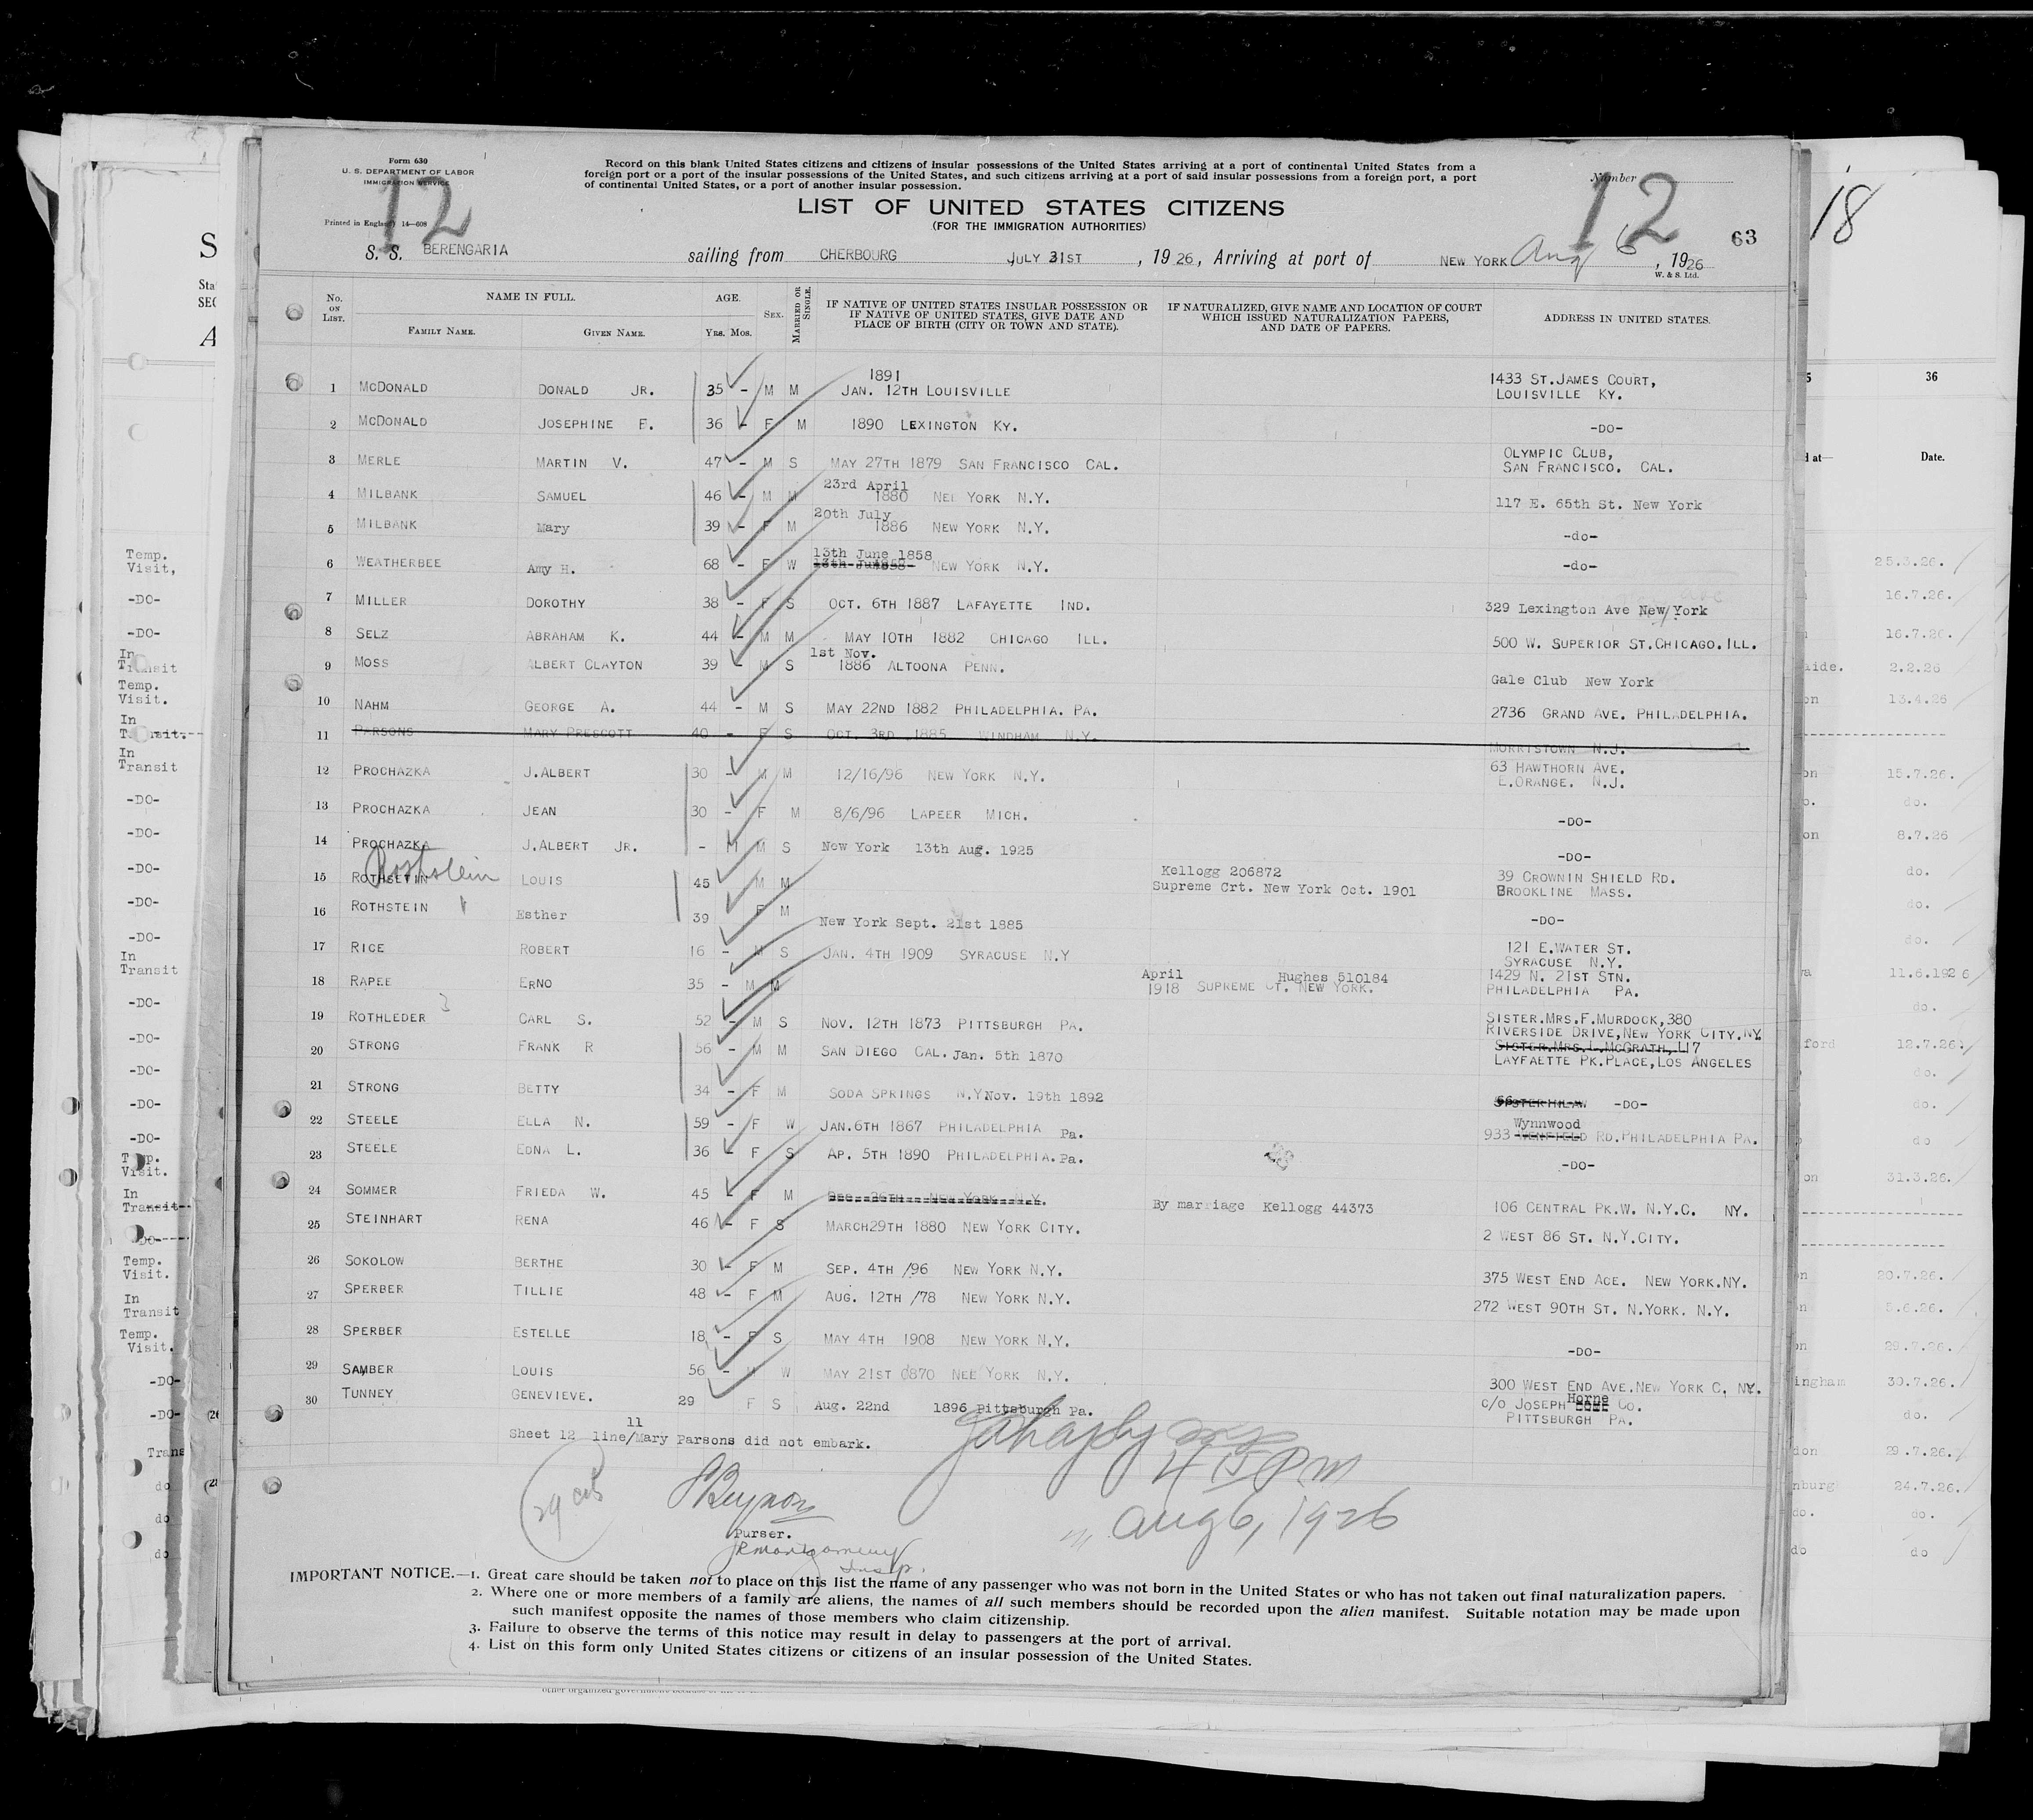 Form 630
U. S. DEPARTMENT OF LABOR
IMMIGRATION SERVICE
Printed in England 14—608
12
Record on this blank United States citizens and citizens of insular possessions of the United States arriving at a port of continental United States from a
foreign port or a port of the insular possessions of the United States, and such citizens arriving at a port of said insular possessions from a foreign port, a port
of continental United States, or a port of another insular possession.
Number
12
63
18
LIST OF UNITED STATES CITIZENS
(FOR THE IMMIGRATION AUTHORITIES)
S. S. BERENGARIA sailing from CHERBOURG JULY 31ST, 1926, Arriving at port of NEW YORK Aug 6, 1926
W. & S. Ltd.
No. ON LIST. NAME IN FULL. FAMILY NAME. GIVEN NAME. AGE. Yrs. Mos. SEX. MARRIED OR SINGLE. IF NATIVE OF UNITED STATES INSULAR POSSESSION OR IF NATIVE OF UNITED STATES, GIVE DATE AND PLACE OF BIRTH (CITY OR TOWN AND STATE). IF NATURALIZED, GIVE NAME AND LOCATION OF COURT WHICH ISSUED NATURALIZATION PAPERS, AND DATE OF PAPERS. ADDRESS IN UNITED STATES.
1 MCDONALD DONALD JR. 35 - M M 1891 JAN. 12TH LOUISVILLE 1433 ST. JAMES COURT, LOUISVILLE KY.
2 MCDONALD JOSEPHINE F. 36 - F M 1890 LEXINGTON KY. -DO-
3 MERLE MARTIN V. 47 - M S MAY 27TH 1879 SAN FRANCISCO CAL. OLYMPIC CLUB, SAN FRANCISCO. CAL.
4 MILBANK SAMUEL 46 - M M 23rd April 1880 NEE YORK N.Y. 117 E. 65th St. New York
5 MILBANK Mary 39 - F M 20th July 1886 NEW YORK N.Y. -do-
6 WEATHERBEE Amy H. 68 - F W 13th June 1858 NEW YORK N.Y. -do-
7 MILLER DOROTHY 38 - F S OCT. 6TH 1887 LAFAYETTE IND. 329 Lexington Ave New York
8 SELZ ABRAHAM K. 44 - M M MAY 10TH 1882 CHICAGO ILL. 500 W. SUPERIOR ST. CHICAGO. ILL.
9 MOSS ALBERT CLAYTON 39 - M S 1st Nov. 1886 ALTOONA PENN. Gale Club New York
10 NAHM GEORGE A. 44 - M S MAY 22ND 1882 PHILADELPHIA. PA. 2736 GRAND AVE. PHILADELPHIA.
11 PARSONS MARY PRESCOTT 40 - F S OCT. 3RD 1885 WINDHAM N.Y. MORRISTOWN N.J.
12 PROCHAZKA J. ALBERT 30 - M M 12/16/96 NEW YORK N.Y. 63 HAWTHORN AVE. E. ORANGE. N.J.
13 PROCHAZKA JEAN 30 - F M 8/6/96 LAPEER MICH. -DO-
14 PROCHAZKA J. ALBERT JR. - M M S New York 13th Aug. 1925 -DO-
15 ROTHSETIN Rothstein LOUIS 45 M M Kellogg 206872 Supreme Crt. New York Oct. 1901 39 CROWNIN SHIELD RD. BROOKLINE MASS.
16 ROTHSTEIN Esther 39 F M New York Sept. 21st 1885 -DO-
17 RICE ROBERT 16 - M S JAN. 4TH 1909 SYRACUSE N.Y 121 E. WATER ST. SYRACUSE N.Y.
18 RAPEE ERNO 35 - M M April 1918 Hughes 510184 SUPREME CT. NEW YORK. 1429 N. 21ST STN. PHILADELPHIA PA.
19 ROTHLEDER CARL S. 52 - M S NOV. 12TH 1873 PITTSBURGH PA. SISTER. MRS. F. MURDOCK, 380 RIVERSIDE DRIVE, NEW YORK CITY. NY
20 STRONG FRANK R 56 - M M SAN DIEGO CAL. Jan. 5th 1870 SISTER. MRS. L. MCGRATH, 117 LAYFAETTE PK. PLACE, LOS ANGELES
21 STRONG BETTY 34 - F M SODA SPRINGS N.Y Nov. 19th 1892 -DO-
22 STEELE ELLA N. 59 - F W JAN. 6TH 1867 PHILADELPHIA Pa. 933 Wynnwood RD. PHILADELPHIA PA.
23 STEELE EDNA L. 36 - F S AP. 5TH 1890 PHILADELPHIA. Pa. -DO-
24 SOMMER FRIEDA W. 45 - F M By marriage Kellogg 44373 106 CENTRAL PK. W. N.Y.C. NY.
25 STEINHART RENA 46 - F S MARCH 29TH 1880 NEW YORK CITY. 2 WEST 86 ST. N.Y. CITY.
26 SOKOLOW BERTHE 30 - F M SEP. 4TH /96 NEW YORK N.Y. 375 WEST END ACE. NEW YORK. NY.
27 SPERBER TILLIE 48 - F M AUG. 12TH /78 NEW YORK N.Y. 272 WEST 90TH ST. N. YORK. N.Y.
28 SPERBER ESTELLE 18 - F S MAY 4TH 1908 NEW YORK N.Y. -DO-
29 SAMBER LOUIS 56 - M W MAY 21ST 1870 NEE YORK N.Y. 300 WEST END AVE. NEW YORK C. NY.
30 TUNNEY GENEVIEVE. 29 F S Aug. 22nd 1896 Pittsburgh Pa. C/O JOSEPH Horne CO. PITTSBURGH PA.
11
Sheet 12 line/Mary Parsons did not embark.
4 15 PM
Aug 6, 1926
Purser.
RMontgomery
Insp.
IMPORTANT NOTICE.—1. Great care should be taken not to place on this list the name of any passenger who was not born in the United States or who has not taken out final naturalization papers.
2. Where one or more members of a family are aliens, the names of all such members should be recorded upon the alien manifest. Suitable notation may be made upon
such manifest opposite the names of those members who claim citizenship.
3. Failure to observe the terms of this notice may result in delay to passengers at the port of arrival.
4. List on this form only United States citizens or citizens of an insular possession of the United States.